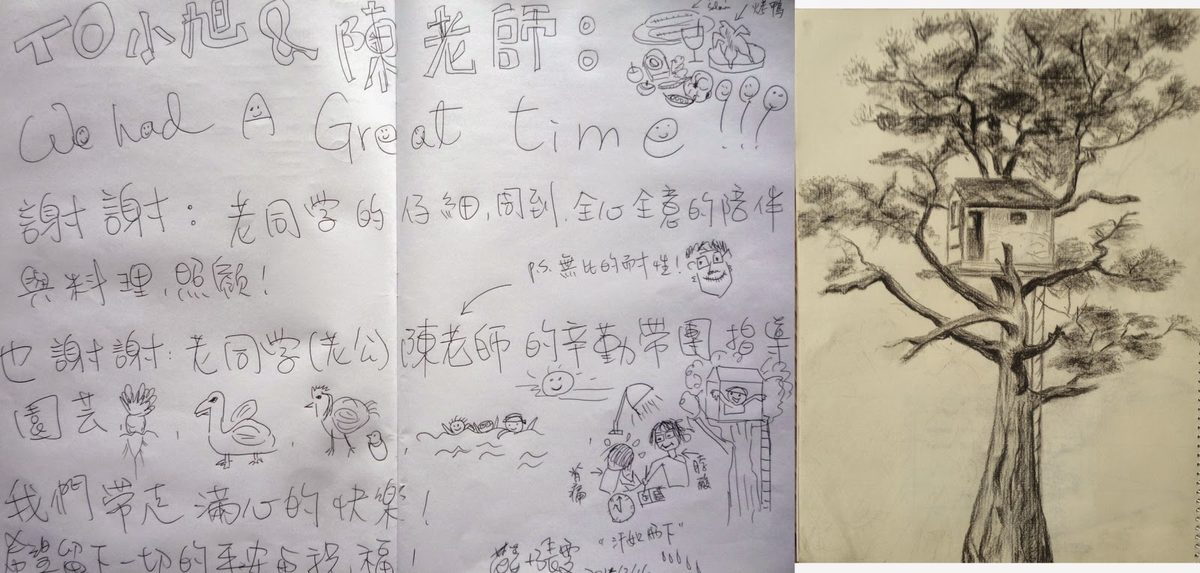 TO 小旭 & 陳老師：
烤鴨
We had A Great time
謝謝：老同学的仔細,周到,全心全意的陪伴
與料理,照顧！
P.S. 無比的耐性！
也謝謝：老同学(老公)陳老師的辛勤帶團指導
園芸
背痛
我們帶走滿心的快樂！
"汗如雨下"
希望留下一切的平安與祝福！